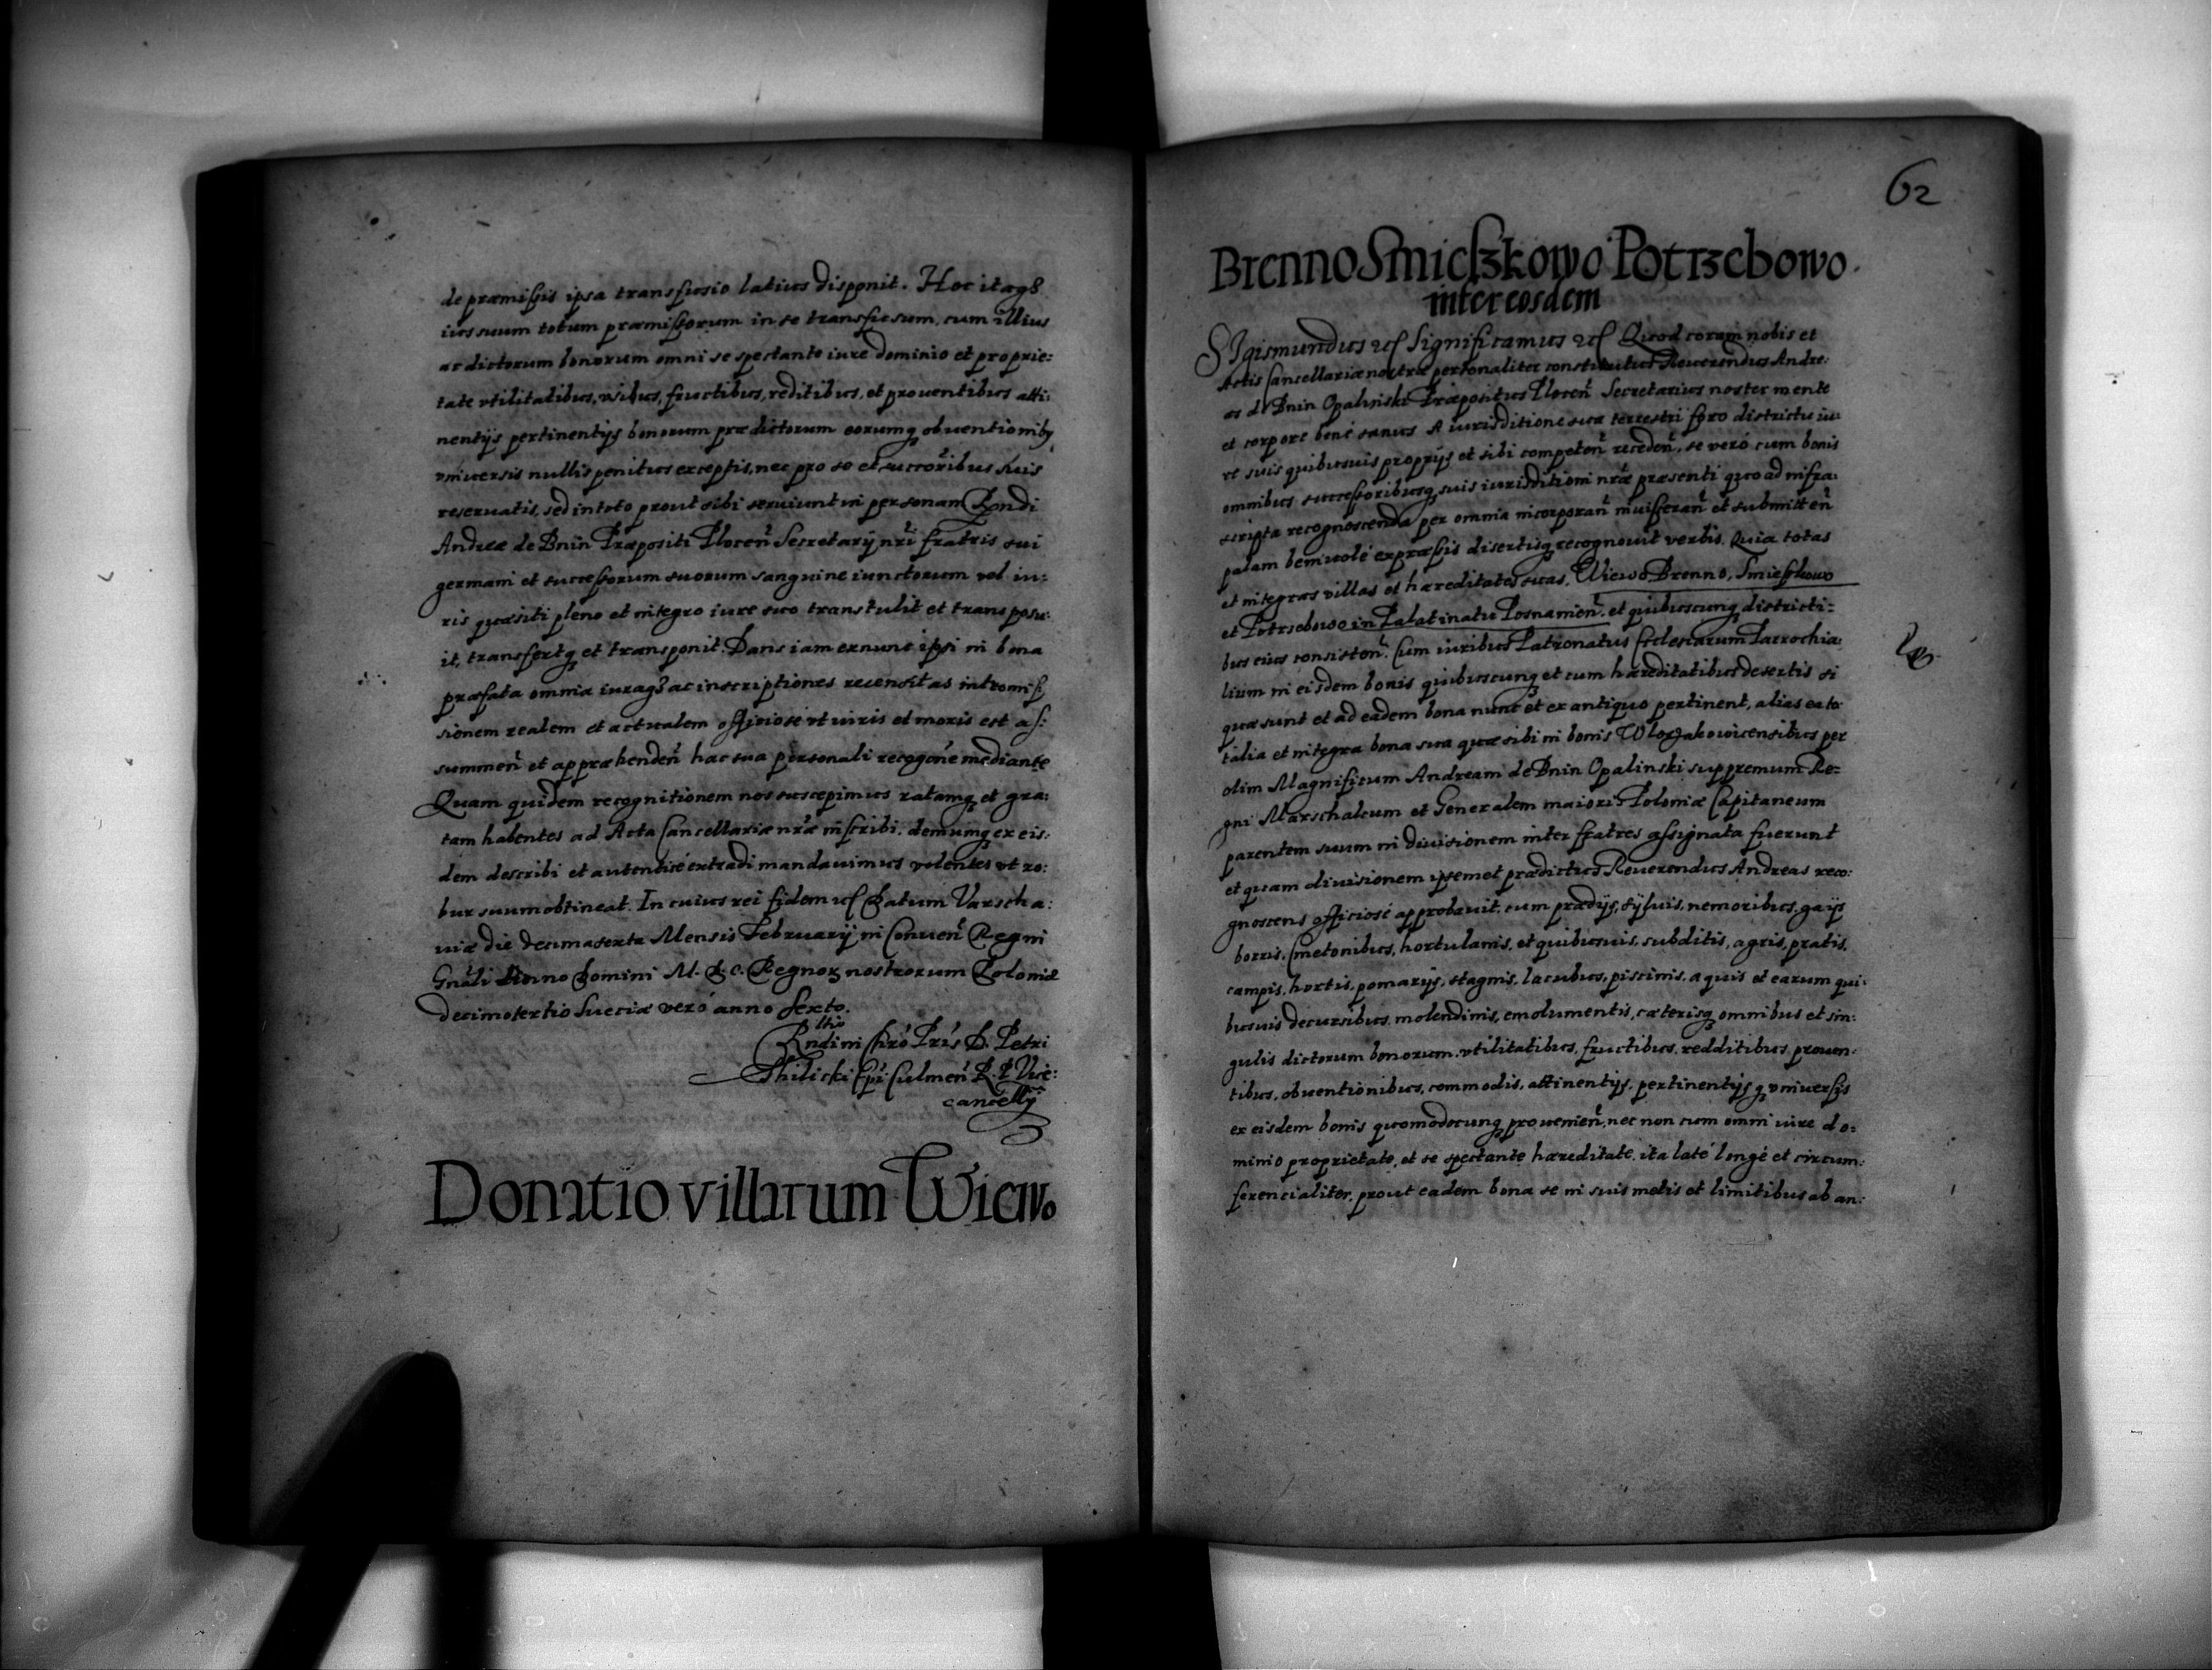 de præmissis ipsa transfusio latius disponit. Hoc itaq3
ius suum totum præmissorum in se transfusum, cum illius
ac dictorum bonorum omni se spectante iure dominio et proprie:
tate vtilitatibus, fructibus, reditibus, et prouentibus atti:
nentijs pertinentijs bonorum prædictorum eorumq obuentionib9
vniuersis nullis penitus exceptis, nec pro se et succoribus suis
reseruatis, sed in toto prout sibi seruiunt in personam Rndi
Andreæ de Bnin Præpositi Plocen Secretarij nri fratris sui
germani et successorum suorum sanguine iunctorum vel iu:
ris quæsiti pleno et integro iure suo transtulit et transposu:
it, transfertq et transponit. Dans iam exnunc ipsi in bona
præfata omnia iuraq3 ac inscriptiones recensitas intromis
sionem realem et actualem officiose vt iuris et moris est as:
summen et appræhenden hac sua personali recogone mediante
Quam quidem recognitionem nos suscepimus ratamq et gra:
tam habentes ad Acta Cancellariæ nræ inscribi, demumq ex eis:
dem describi et autenticé extradi mandauimus volentes vt ro:
bur suum obtineat. In cuius rei fidem etc Datum Varscha:
uiæ die decimasexta Mensis Februarij in Conuen Regni
Gnali Anno Domini M. D. C. Regnor nostrorum Poloniæ
decimotertio Sueciæ veró anno sexto.
Rndini Chró Pris D. Petri
Thilicki Epi Culmen R. P. Vice:
cancellij
Donatio villarum Wiewo
62
Brenno Smieszkowo Potrzebowo.
inter eosdem
Sigismundus etc Significamus etc Quod coram nobis et
Actis Cancellariæ nostræ personaliter constitutus Reuerendus Andre:
as de Bnin Opaliński Præpositus Plocen Secretarius noster mente
et corpore bené sanus A iurisditione sua terrestri foro districtu iu:
re suis quibusuis proprijs et sibi competen receden, se veró cum bonis
omnibus successoribusq suis iurisditioni nræ præsenti quo ad infra:
scripta recognoscenda per omnia incorporan inuisceran et submitten
palam beniuolé expressis disertisq recognouit verbis. Quia totas
et integras villas et hæreditates suas, Wiewo Brenno, Smieszkowo
et Potrzebowo in Palatinatu Posnanien. et quibuscunq districti=
bus eius consisten. Cum iuribus Patronatus Ecclesiarum Parrochia:
lium in eisdem bonis quibuscunq et cum hæreditatibus desertis si
quæ sunt et ad eadem bona nunc et ex antiquo pertinent, alias ea to:
talia et integra bona sua quæ sibi in bonis Wloszakowicensibus per
olim Magnificum Andream de Bnin Opalinski suppremum Re=
gni Marschalcum et Generalem maioris Poloniæ Capitaneum
parentem suum in diuisionem inter fratres assignata fuerunt
et quam diuisionem ipsemet prædictus Reuerendus Andreas reco:
gnoscens officiosé approbauit, cum prædijs, syluis, nemoribus, gaijs
borris, Cmetonibus, hortulanis, et quibusuis, subditis, agris, pratis,
campis, hortis, pomarijs, stagnis, lacubus, piscinis, aquis et earum qui:
busuis decursibus, molendinis, emolumentis, cæterisq omnibus et sin:
gulis dictorum bonorum, vtilitatibus, fructibus, redditibus, prouen:
tibus, obuentionibus, commodis, attinentijs, pertinentijsq vniuersis
ex eisdem bonis quomodocunq prouenien, nec non cum omni iure do:
minio proprietate, et se spectante hæreditate, ita laté longé et circum:
ferencialiter, prout eadem bona se in suis metis et limitibus ab an: